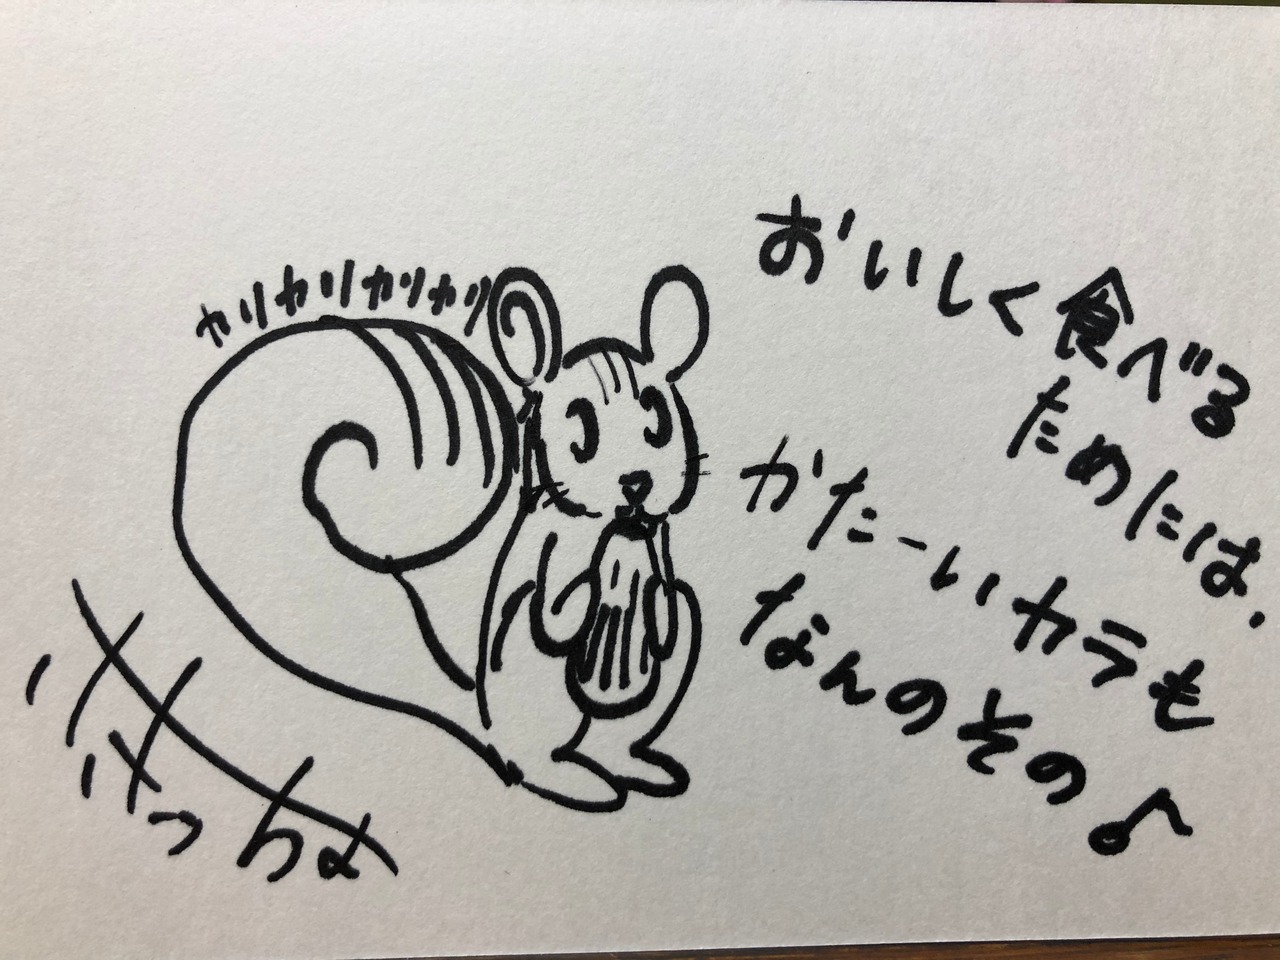 カリカリカリカリ
おいしく食べる
ためには、
かたーいカラも
なんのその♪